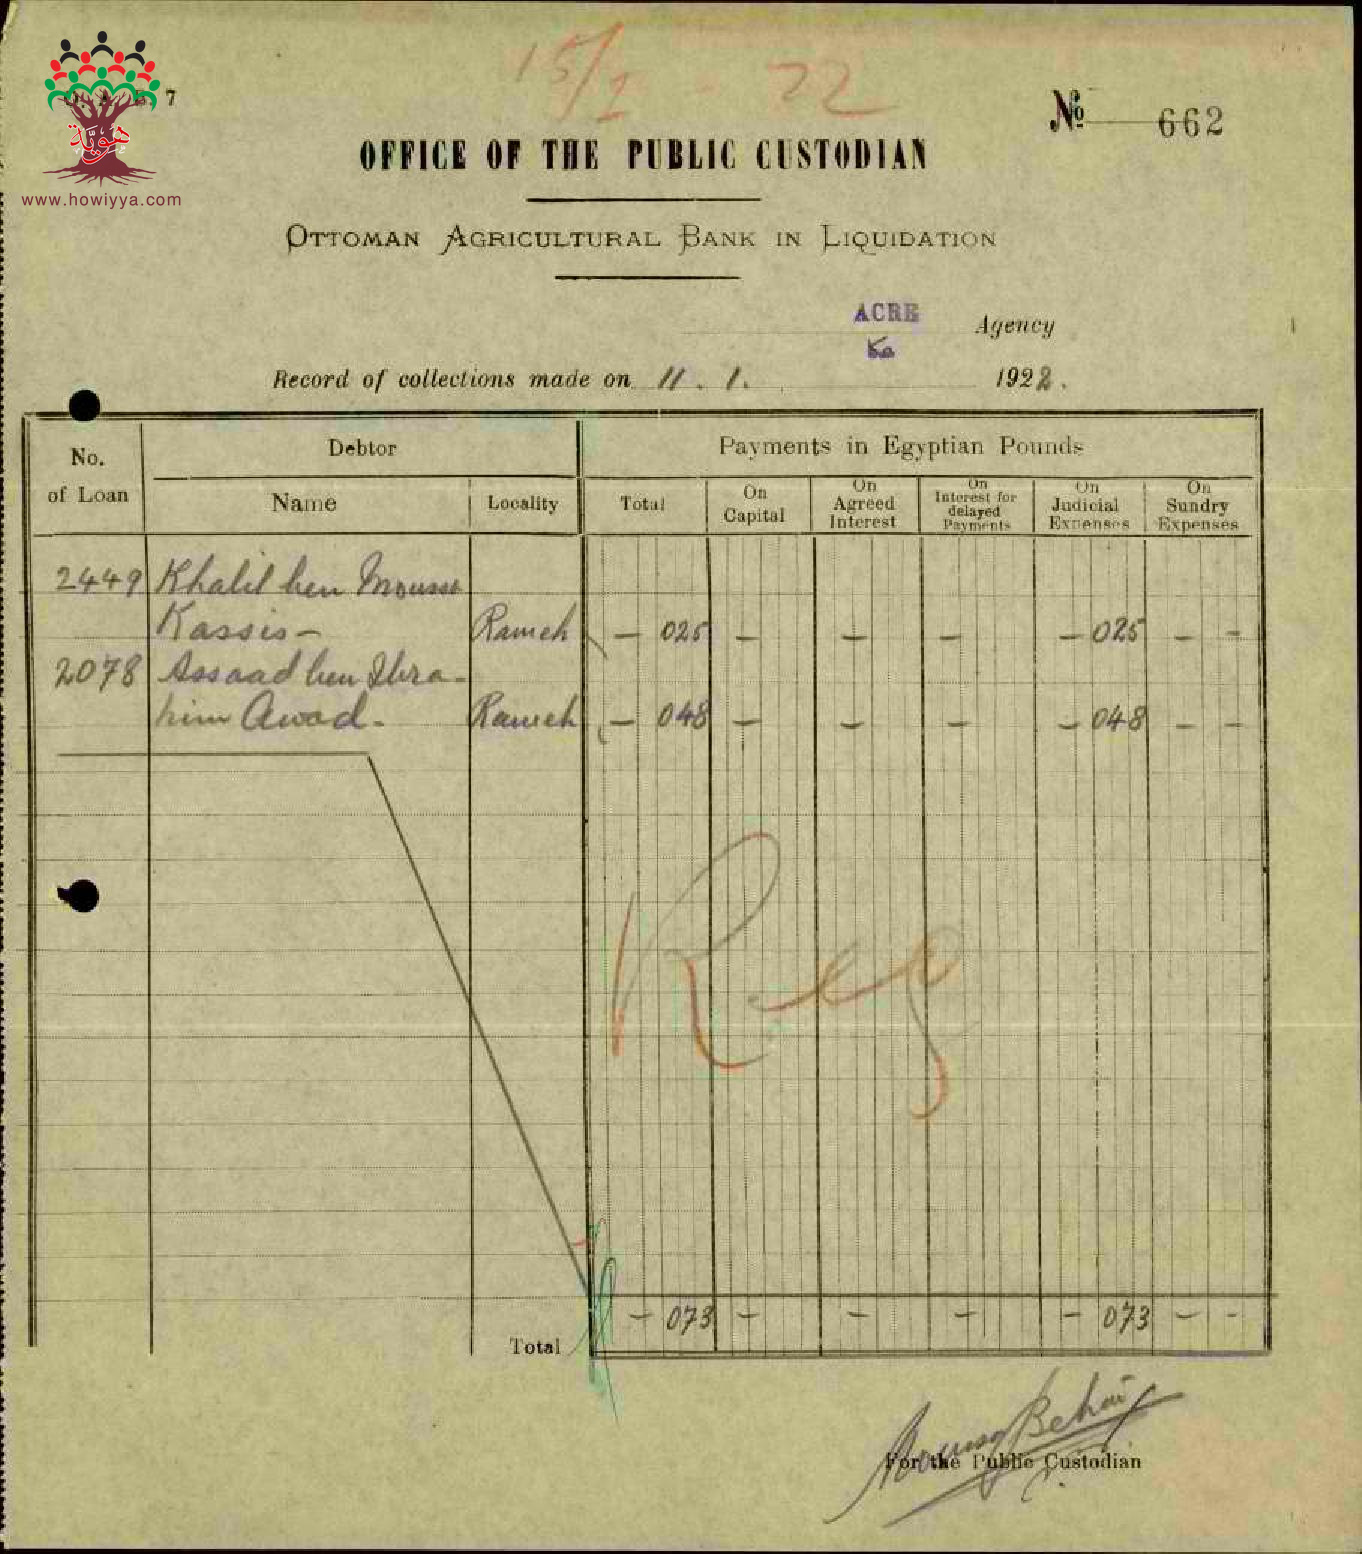 15/1 - 22
7
هوية
www.howiyya.com
No 662
OFFICE OF THE PUBLIC CUSTODIAN
OTTOMAN AGRICULTURAL BANK IN LIQUIDATION
ACRE Agency
Record of collections made on 11 . 1. 1922.
No. of Loan Debtor Payments in Egyptian Pounds
Name Locality Total On Capital On Agreed Interest On Interest for delayed Payments On Judicial Expenses On Sundry Expenses
2449 Khalil ben Moussa
Kassis - Rameh - 025 - - - - 025 - -
2078 Assaad ben Ibra-
him Awad - Rameh - 048 - - - - 048 - -
Reg
Total - 073 - - - - 073 - -
For the Public Custodian